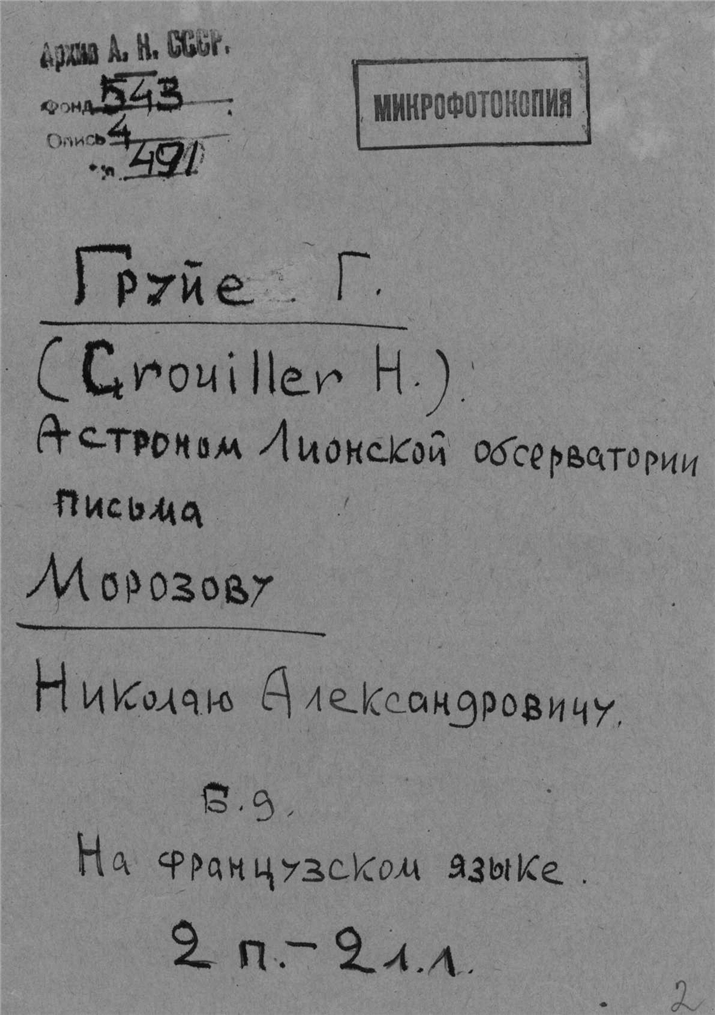 Архив А. Н. СССР.
МИКРОФОТОКОПИЯ
Фонд 543
Опись 4
№ 491
Груйе Г.
(Grouiller H.)
Астроном Лионской обсерватории
письма
Морозову
Николаю Александровичу.
Б.д.
На французском языке.
2 п. – 2 л.л.
2